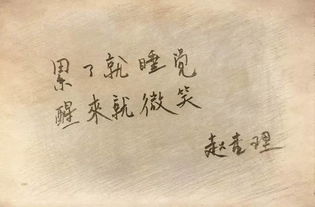 累了就睡觉
醒來就微笑
赵查理